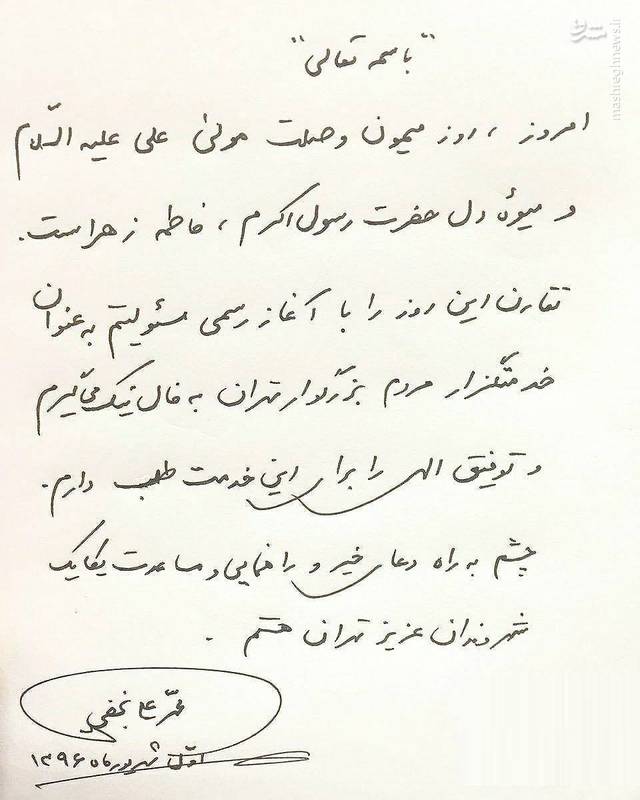 "باسمه تعالی"
امروز ، روز میمون وصلت مولیٰ علی علیه السّلام
و میوهٔ دل حضرت رسول اکرم ، فاطمه زهراست.
تقارن این روز را با آغاز رسمی مسئولیتم به عنوان
خدمتگزار مردم بزرگوار تهران به فال نیک می‌گیرم
و توفیق الهی را برای این خدمت طلب دارم.
چشم به راه دعای خیر و راهنمایی و مساعدت یکایک
شهروندان عزیز تهران هستم .
محمّد علی نجفی
اوّل شهریور ماه ۱۳۹۶
مشرق
mashreghnews.ir